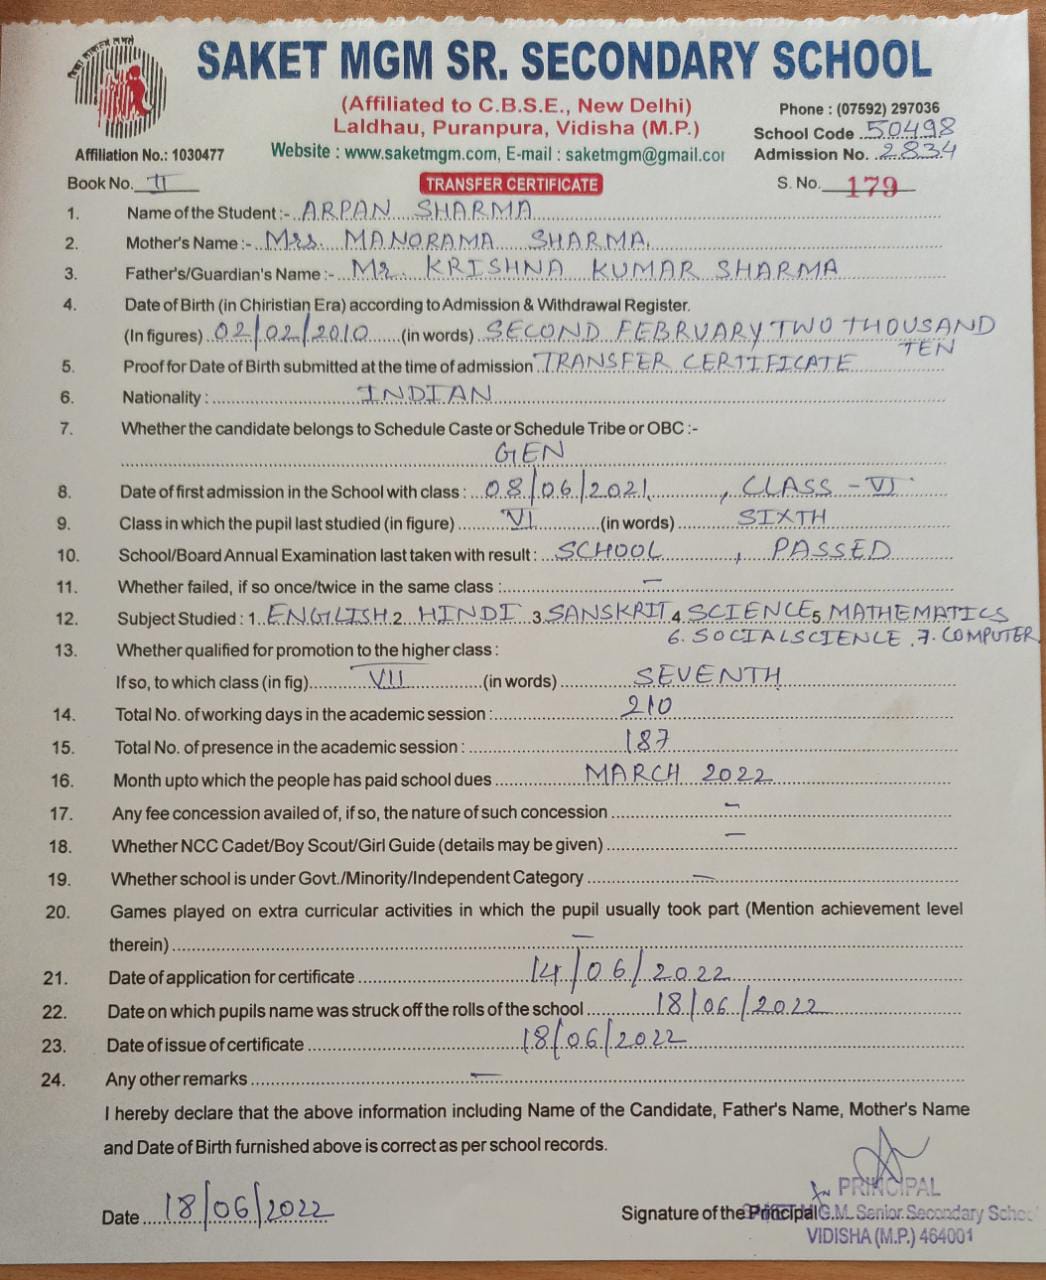 SAKET MGM SR. SECONDARY SCHOOL
(Affiliated to C.B.S.E., New Delhi)
Phone : (07592) 297036
Laldhau, Puranpura, Vidisha (M.P.)
School Code 50498
Affiliation No.: 1030477
Website : www.saketmgm.com, E-mail : saketmgm@gmail.cor
Admission No. 2834
Book No. II
TRANSFER CERTIFICATE
S. No. 179
1. Name of the Student :- ARPAN SHARMA
2. Mother's Name :- Mrs. MANORAMA SHARMA
3. Father's/Guardian's Name :- Mr. KRISHNA KUMAR SHARMA
4. Date of Birth (in Chiristian Era) according to Admission & Withdrawal Register.
(In figures) 02/02/2010 (in words) SECOND FEBRUARY TWO THOUSAND
TEN
5. Proof for Date of Birth submitted at the time of admission TRANSFER CERTIFICATE
6. Nationality : INDIAN
7. Whether the candidate belongs to Schedule Caste or Schedule Tribe or OBC :-
GEN
8. Date of first admission in the School with class : 08/06/2021, CLASS - VI
9. Class in which the pupil last studied (in figure) VI (in words) SIXTH
10. School/Board Annual Examination last taken with result : SCHOOL , PASSED
11. Whether failed, if so once/twice in the same class : —
12. Subject Studied : 1. ENGLISH 2. HINDI 3. SANSKRIT 4. SCIENCE 5. MATHEMATICS
6. SOCIAL SCIENCE 7. COMPUTER
13. Whether qualified for promotion to the higher class :
If so, to which class (in fig) VII (in words) SEVENTH
14. Total No. of working days in the academic session : 210
15. Total No. of presence in the academic session : 187
16. Month upto which the people has paid school dues MARCH 2022
17. Any fee concession availed of, if so, the nature of such concession –
18. Whether NCC Cadet/Boy Scout/Girl Guide (details may be given) —
19. Whether school is under Govt./Minority/Independent Category —
20. Games played on extra curricular activities in which the pupil usually took part (Mention achievement level
therein) —
21. Date of application for certificate 14/06/2022
22. Date on which pupils name was struck off the rolls of the school 18/06/2022
23. Date of issue of certificate 18/06/2022
24. Any other remarks —
I hereby declare that the above information including Name of the Candidate, Father's Name, Mother's Name
and Date of Birth furnished above is correct as per school records.
PRINCIPAL
Date 18/06/2022
Signature of the Principal G.M. Senior Secondary Schoo
VIDISHA (M.P.) 464001